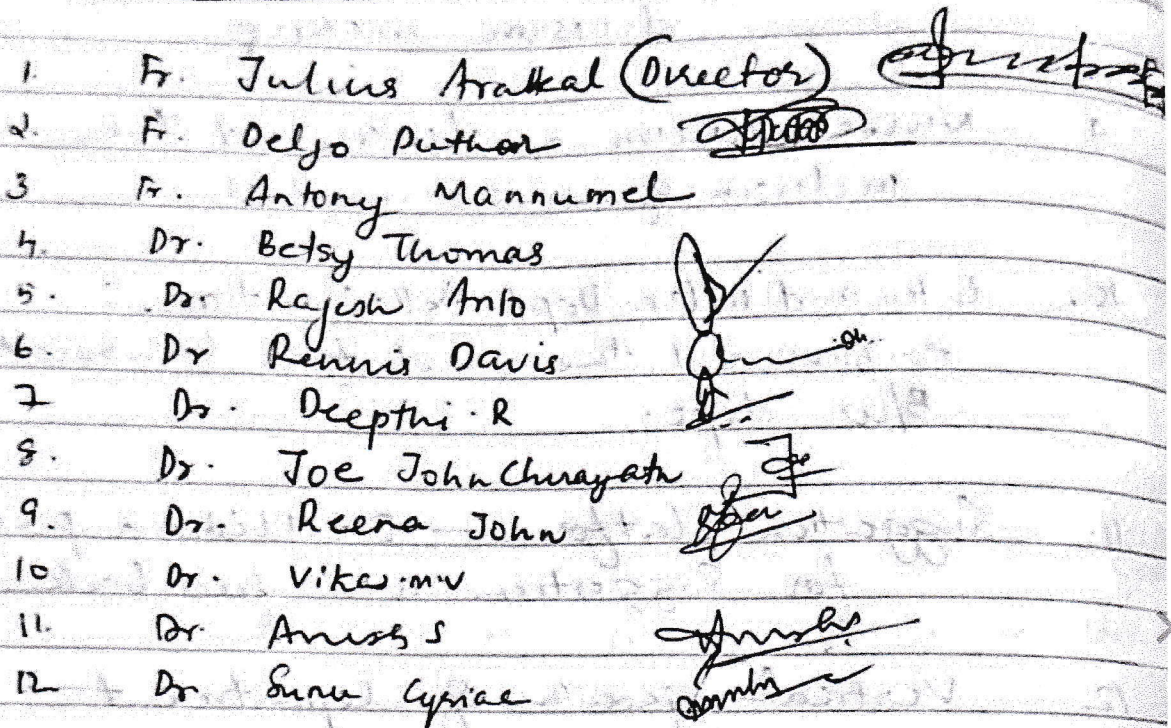 1. Fr. Julius Arakkal (Director)
2. Fr. Deljo Puthoor
3 Fr. Antony Mannumel
4. Dr. Betsy Thomas
5. Dr. Rajesh Anto
6. Dr Rennis Davis
7 Dr. Deepthi. R
8. Dr. Joe John Chirayath
9. Dr. Reena John
10 Dr. Vikas.m.v
11. Dr. Anish S
12 Dr Sunu Cyriac